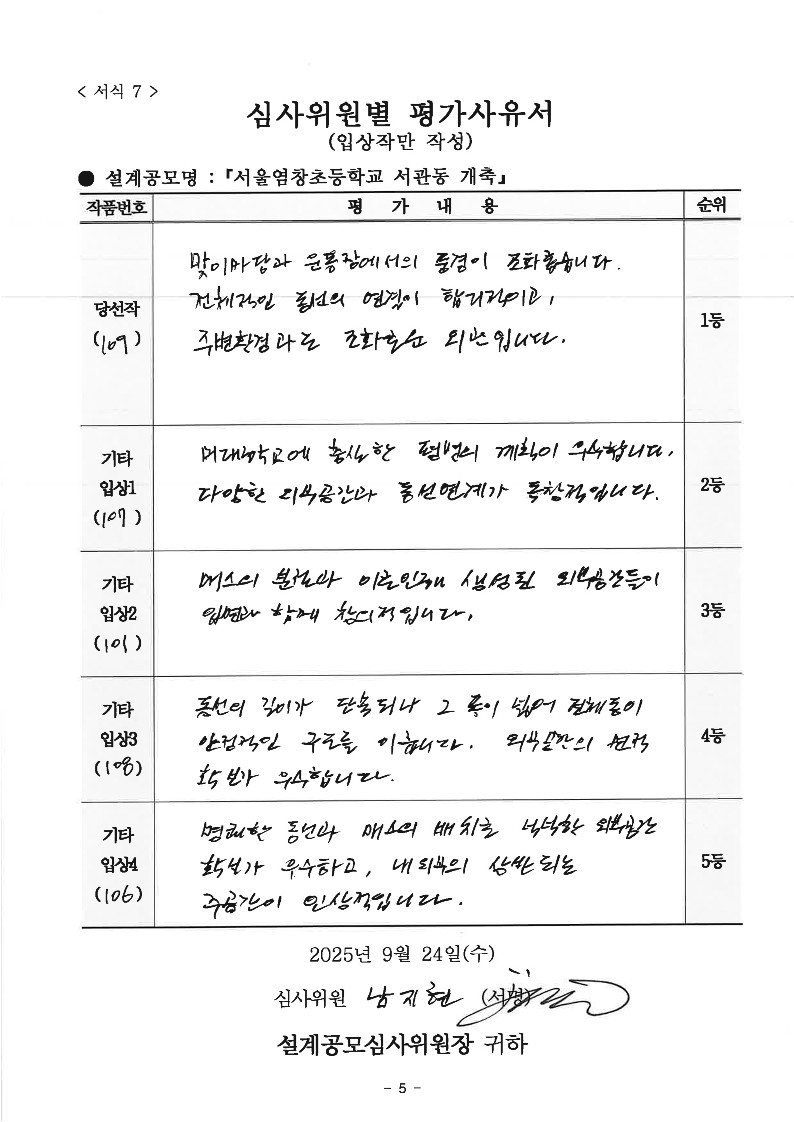 < 서식 7 >
심사위원별 평가사유서
(입상작만 작성)
● 설계공모명 : 『서울염창초등학교 서관동 개축』
작품번호 평 가 내 용 순위
당선작
(109)
맞이마당과 운동장에서의 풍경이 조화롭습니다.
전체적인 동선의 연결이 합리적이고,
주변환경과도 조화로운 외관입니다.
1등
기타
입상1
(107)
미래학교에 충실한 평면의 계획이 우수합니다.
다양한 외부공간과 동선연계가 독창적입니다.
2등
기타
입상2
(101)
매스의 분절과 이로인해 생성된 외부공간들이
입면과 함께 창의적입니다.
3등
기타
입상3
(108)
동선의 길이가 단축되나 그 폭이 넓어 전체동이
안정적인 구조를 이룹니다. 외부공간의 면적
확보가 우수합니다.
4등
기타
입상4
(106)
명쾌한 동선과 매스의 배치로 넉넉한 외부공간
확보가 우수하고, 내외부의 상반되는
주공간이 인상적입니다.
5등
2025년 9월 24일(수)
심사위원 남지현 (서명)
설계공모심사위원장 귀하
- 5 -